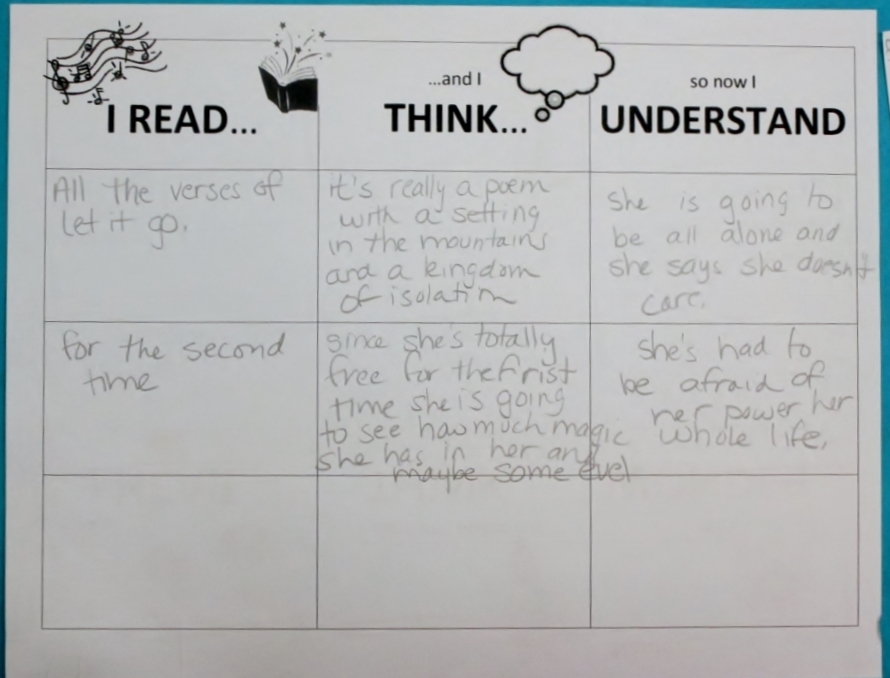 I READ...
...and I
THINK...
so now I
UNDERSTAND
All the verses of
let it go.
it's really a poem
with a setting
in the mountains
and a kingdom
of isolatin
she is going to
be all alone and
she says she doesn't
care.
for the second
time
since she's totally
free for the frist
time she is going
to see how much magic
she has in her and
maybe some evel
she's had to
be afraid of
her power her
whole life.